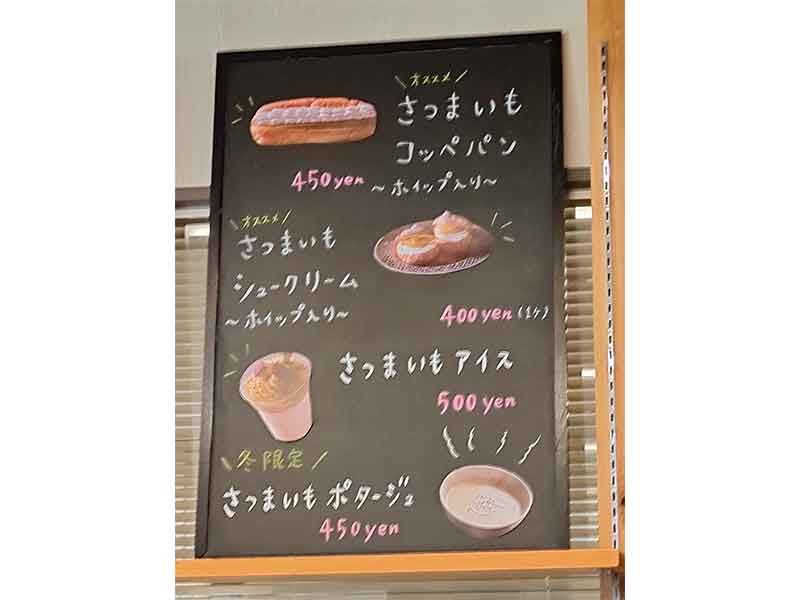 \オススメ/
さつまいも
コッペパン
450yen ～ホイップ入り～
\オススメ/
さつまいも
シュークリーム
～ホイップ入り～
400yen (1ケ)
さつまいもアイス
500yen
\冬限定/
さつまいもポタージュ
450yen